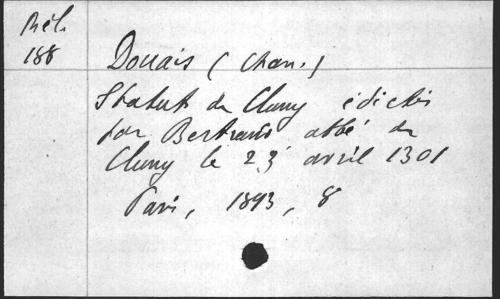 Rél.
188
Douais (Chan.)
Statuts de Cluny édictés
par Bertrand abbé de
Cluny le 23 avril 1301
Paris, 1893, 8